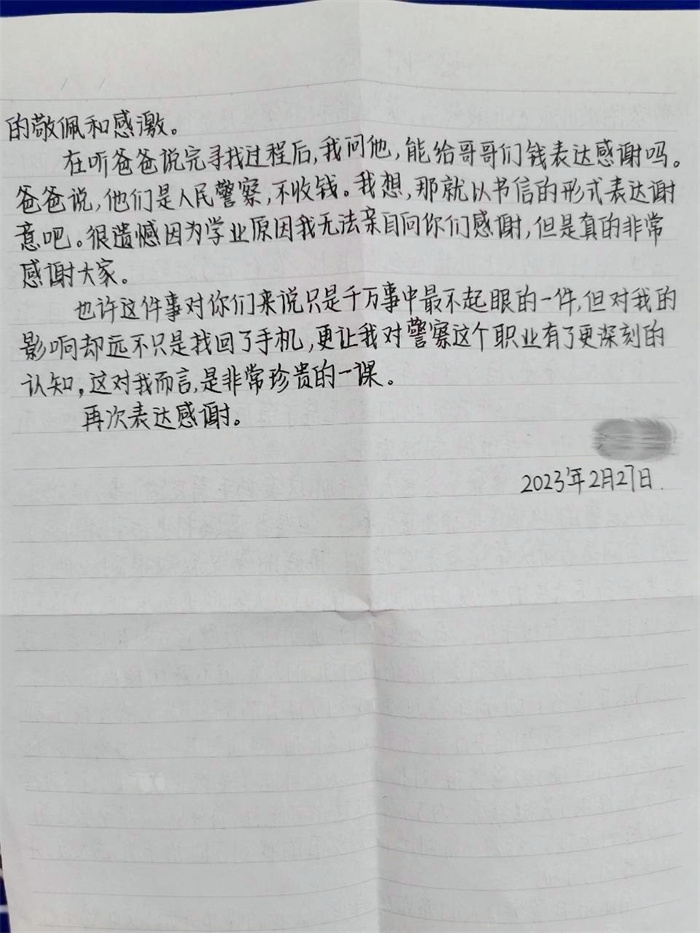 的敬佩和感激。
在听爸爸说完寻找过程后,我问他,能给哥哥们钱表达感谢吗。
爸爸说,他们是人民警察,不收钱。我想,那就以书信的形式表达谢
意吧。很遗憾因为学业原因我无法亲自向你们感谢,但是真的非常
感谢大家。
也许这件事对你们来说只是千万事中最不起眼的一件,但对我的
影响却远不只是找回了手机,更让我对警察这个职业有了更深刻的
认知,这对我而言,是非常珍贵的一课。
再次表达感谢。
2023年2月27日.